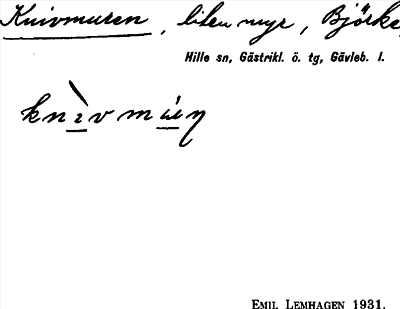 Knivmuren, liten myr, Björke
Hille sn, Gästrikl. ö. tg, Gävleb. l.
EMIL LEMHAGEN 1931.